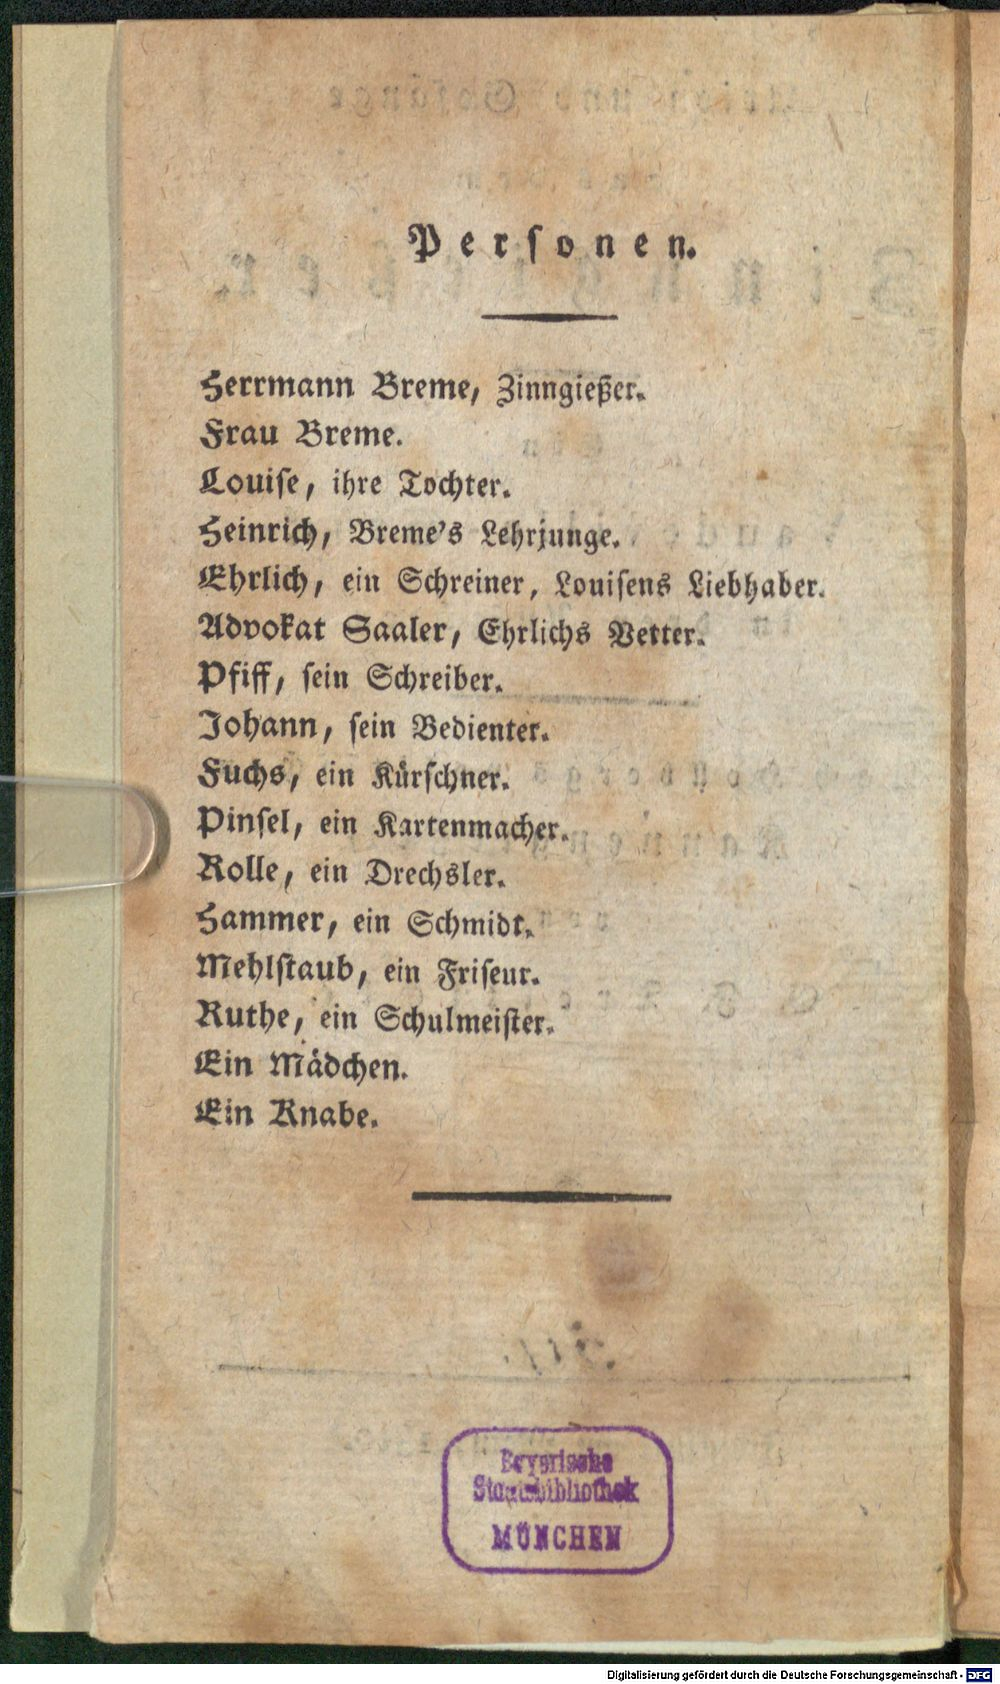 Personen.
Herrmann Breme, Zinngießer.
Frau Breme.
Louise, ihre Tochter.
Heinrich, Breme's Lehrjunge.
Ehrlich, ein Schreiner, Louisens Liebhaber.
Advokat Saaler, Ehrlichs Vetter.
Pfiff, sein Schreiber.
Johann, sein Bedienter.
Fuchs, ein Kürschner.
Pinsel, ein Kartenmacher.
Rolle, ein Drechsler.
Hammer, ein Schmidt.
Mehlstaub, ein Friseur.
Ruthe, ein Schulmeister.
Ein Mädchen.
Ein Knabe.
Bayerische
Staatsbibliothek
MÜNCHEN
Digitalisierung gefördert durch die Deutsche Forschungsgemeinschaft - DFG